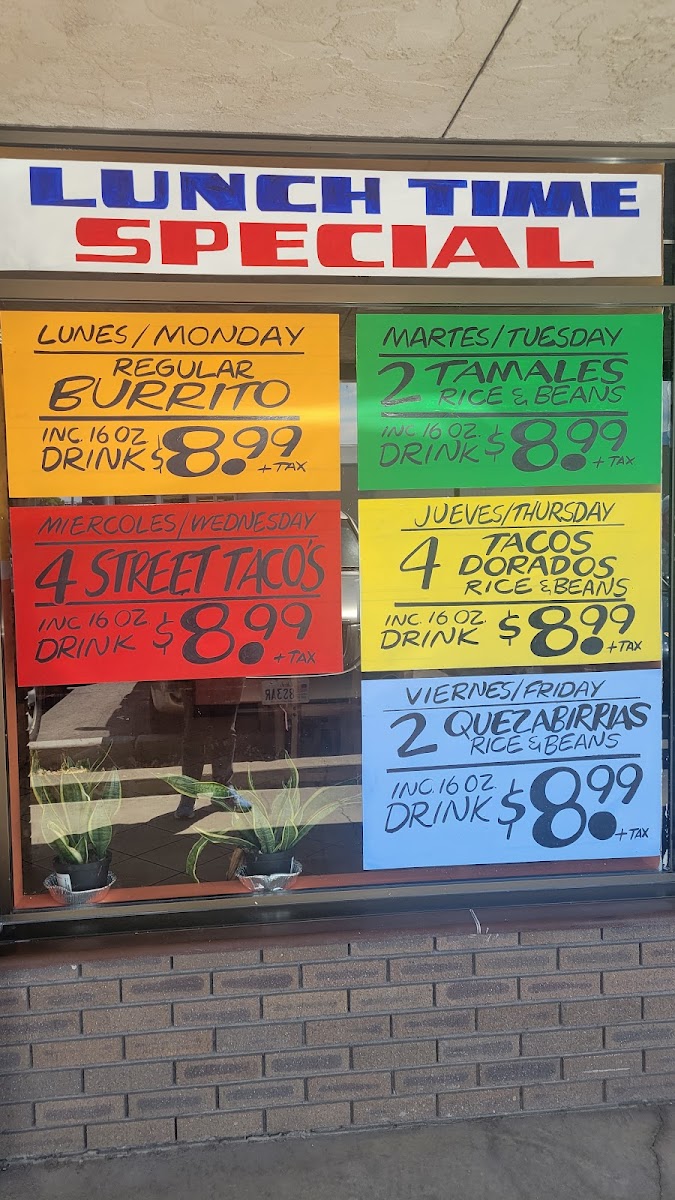 LUNCH TIME
SPECIAL
LUNES/MONDAY
REGULAR
BURRITO
INC. 16 OZ
DRINK $8.99
+ TAX
MARTES/TUESDAY
2 TAMALES
RICE & BEANS
INC 16 OZ.
DRINK $8.99
+ TAX
MIERCOLES/WEDNESDAY
4 STREET TACO'S
INC 16 OZ
DRINK $8.99
+ TAX
JUEVES/THURSDAY
4 TACOS
DORADOS
RICE & BEANS
INC. 16 OZ.
DRINK $8.99
+ TAX
VIERNES/FRIDAY
2 QUEZABIRRIAS
RICE & BEANS
INC. 16 OZ.
DRINK $8.99
+ TAX